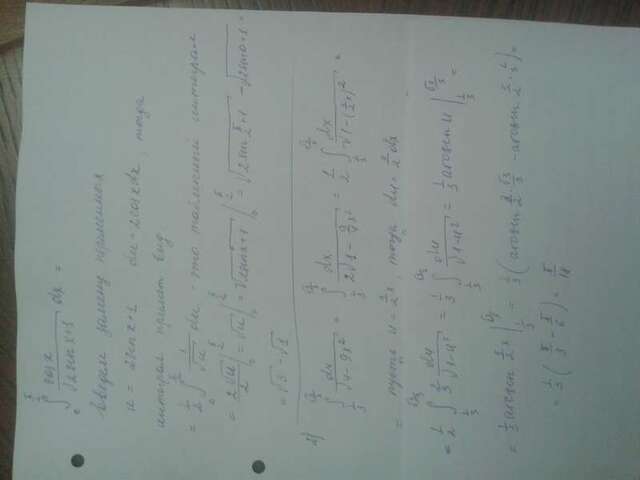 ∫₀^{π/2} cos x / √(2 sin x + 1) dx =
Введём замену переменной
u = 2 sin x + 1   du = 2 cos x dx, тогда
интеграл примет вид
= 1/2 ∫ 1/√u du - это табличный интеграл
= 2√u/2 | = √u | = √(2 sin x + 1) |₀^{π/2} = √(2 sin π/2 + 1) - √(2 sin 0 + 1) =
= √3 - √1
2)
∫_{1/3} dx/√(4-9x²) = ∫_{1/3} dx/(2√(1-9/4 x²)) = 1/2 ∫_{1/3} dx/√(1-(3/2 x)²) =
= пусть u = 3/2 x, тогда du = 3/2 dx
= 1/2 ∫_{1/3} 2/3 du/√(1-u²) = 1/3 ∫_{1/3} du/√(1-u²) = 1/3 arcsin u |_{1/3} =
= 1/3 arcsin 3/2 x |_{1/3} = 1/3 (arcsin 3/2 · √3/3 - arcsin 3/2 · 1/3) =
= 1/3 (π/3 - π/6) = π/18